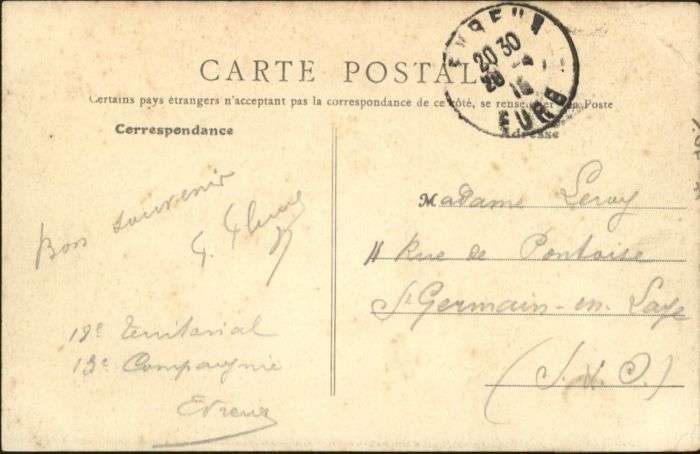 EVREUX
20 30
28
EURE
CARTE POSTALE
Certains pays étrangers n'acceptant pas la correspondance de ce côté, se renseigner à la Poste
Correspondance
Adresse
Bon souvenir
G.
18e Territorial
13e Compagnie
Evreux
Madame Leroy
11 Rue de Pontoise
St Germain-en-Laye
(S. & O.)